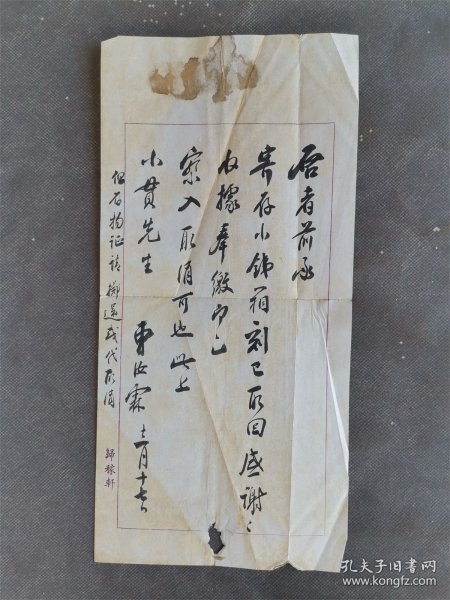 启者前承
寄存小铁箱刻已取回感谢〻
收据奉缴即乞
察入取消可也此上
小贯先生 曹汝霖 十二月十七日
但存物证请掷还或代取消
歸稼軒
孔夫子旧书网
www.kongfz.com